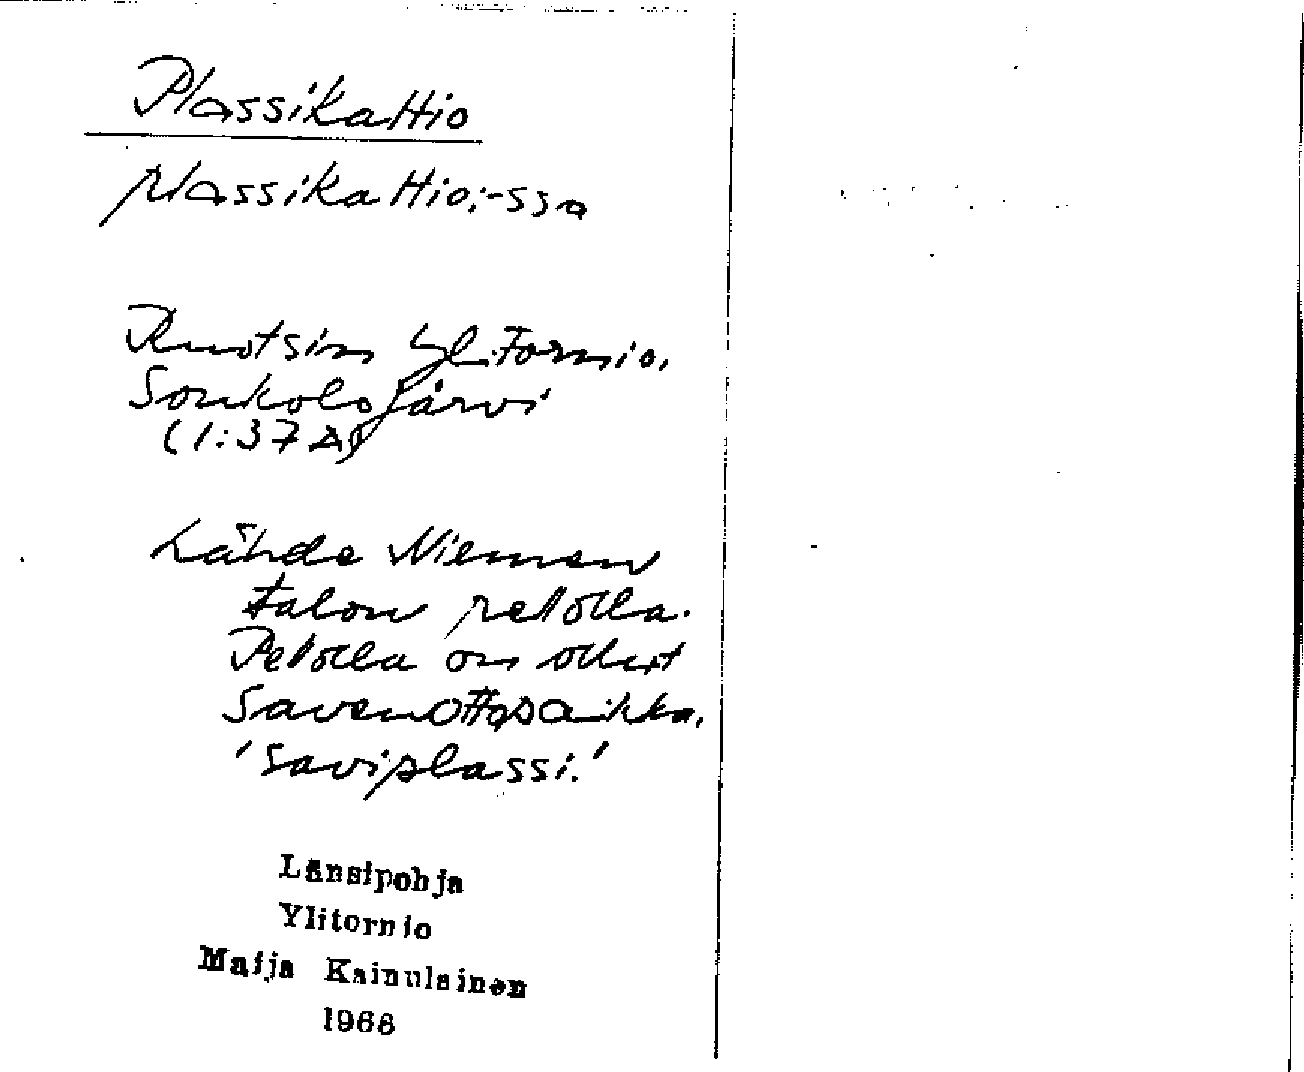 Plassikaltio
plassikaltio:-ssa
Ruotsin Ylitornio,
Soukolojärvi
(1:37 A)
Lähde Niemen
talon pellolla.
Pellolla on ollut
savenottopaikka,
'saviplassi.'
Länsipohja
Ylitornio
Maija Kainulainen
1966